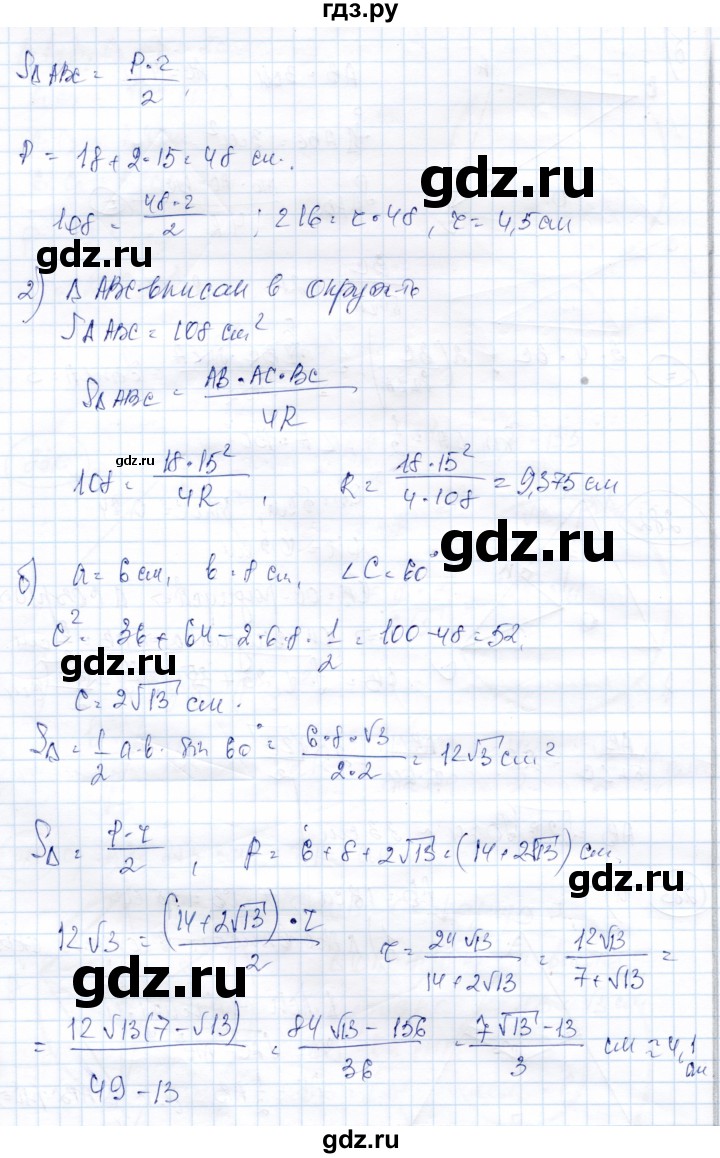 гдз.ру
S△ABC = P·r/2,
P = 18+2·15 = 48 см.
gdz.ru
108 = 48·r/2 ; 216 = r·48, r = 4,5 см
gdz.ru
2) △ABC-вписан в окруж-ть
S△ABC = 108 см²
S△ABC = AB·AC·BC/4R
gdz.ru
108 = 18·15²/4R, R = 18·15²/4·108 = 9,375 см
gdz.ru
б) a = 6 см, b = 8 см, ∠C = 60°
c² = 36 + 64 - 2·6·8·1/2 = 100-48 = 52.
gdz.ru
c = 2√13 см.
S△ = 1/2 a·b·sin 60° = 6·8·√3/2·2 = 12√3 см²
S△ = P·r/2, P = 6+8+2√13 = (14+2√13) см.
gdz.ru
12√3 = (14+2√13)·r/2 r = 24√13/14+2√13 = 12√13/7+√13 =
gdz.ru
= 12√13(7-√13)/49-13 = 84√13-156/36 = 7√13-13/3 см ≈ 4,1 см
gdz.ru